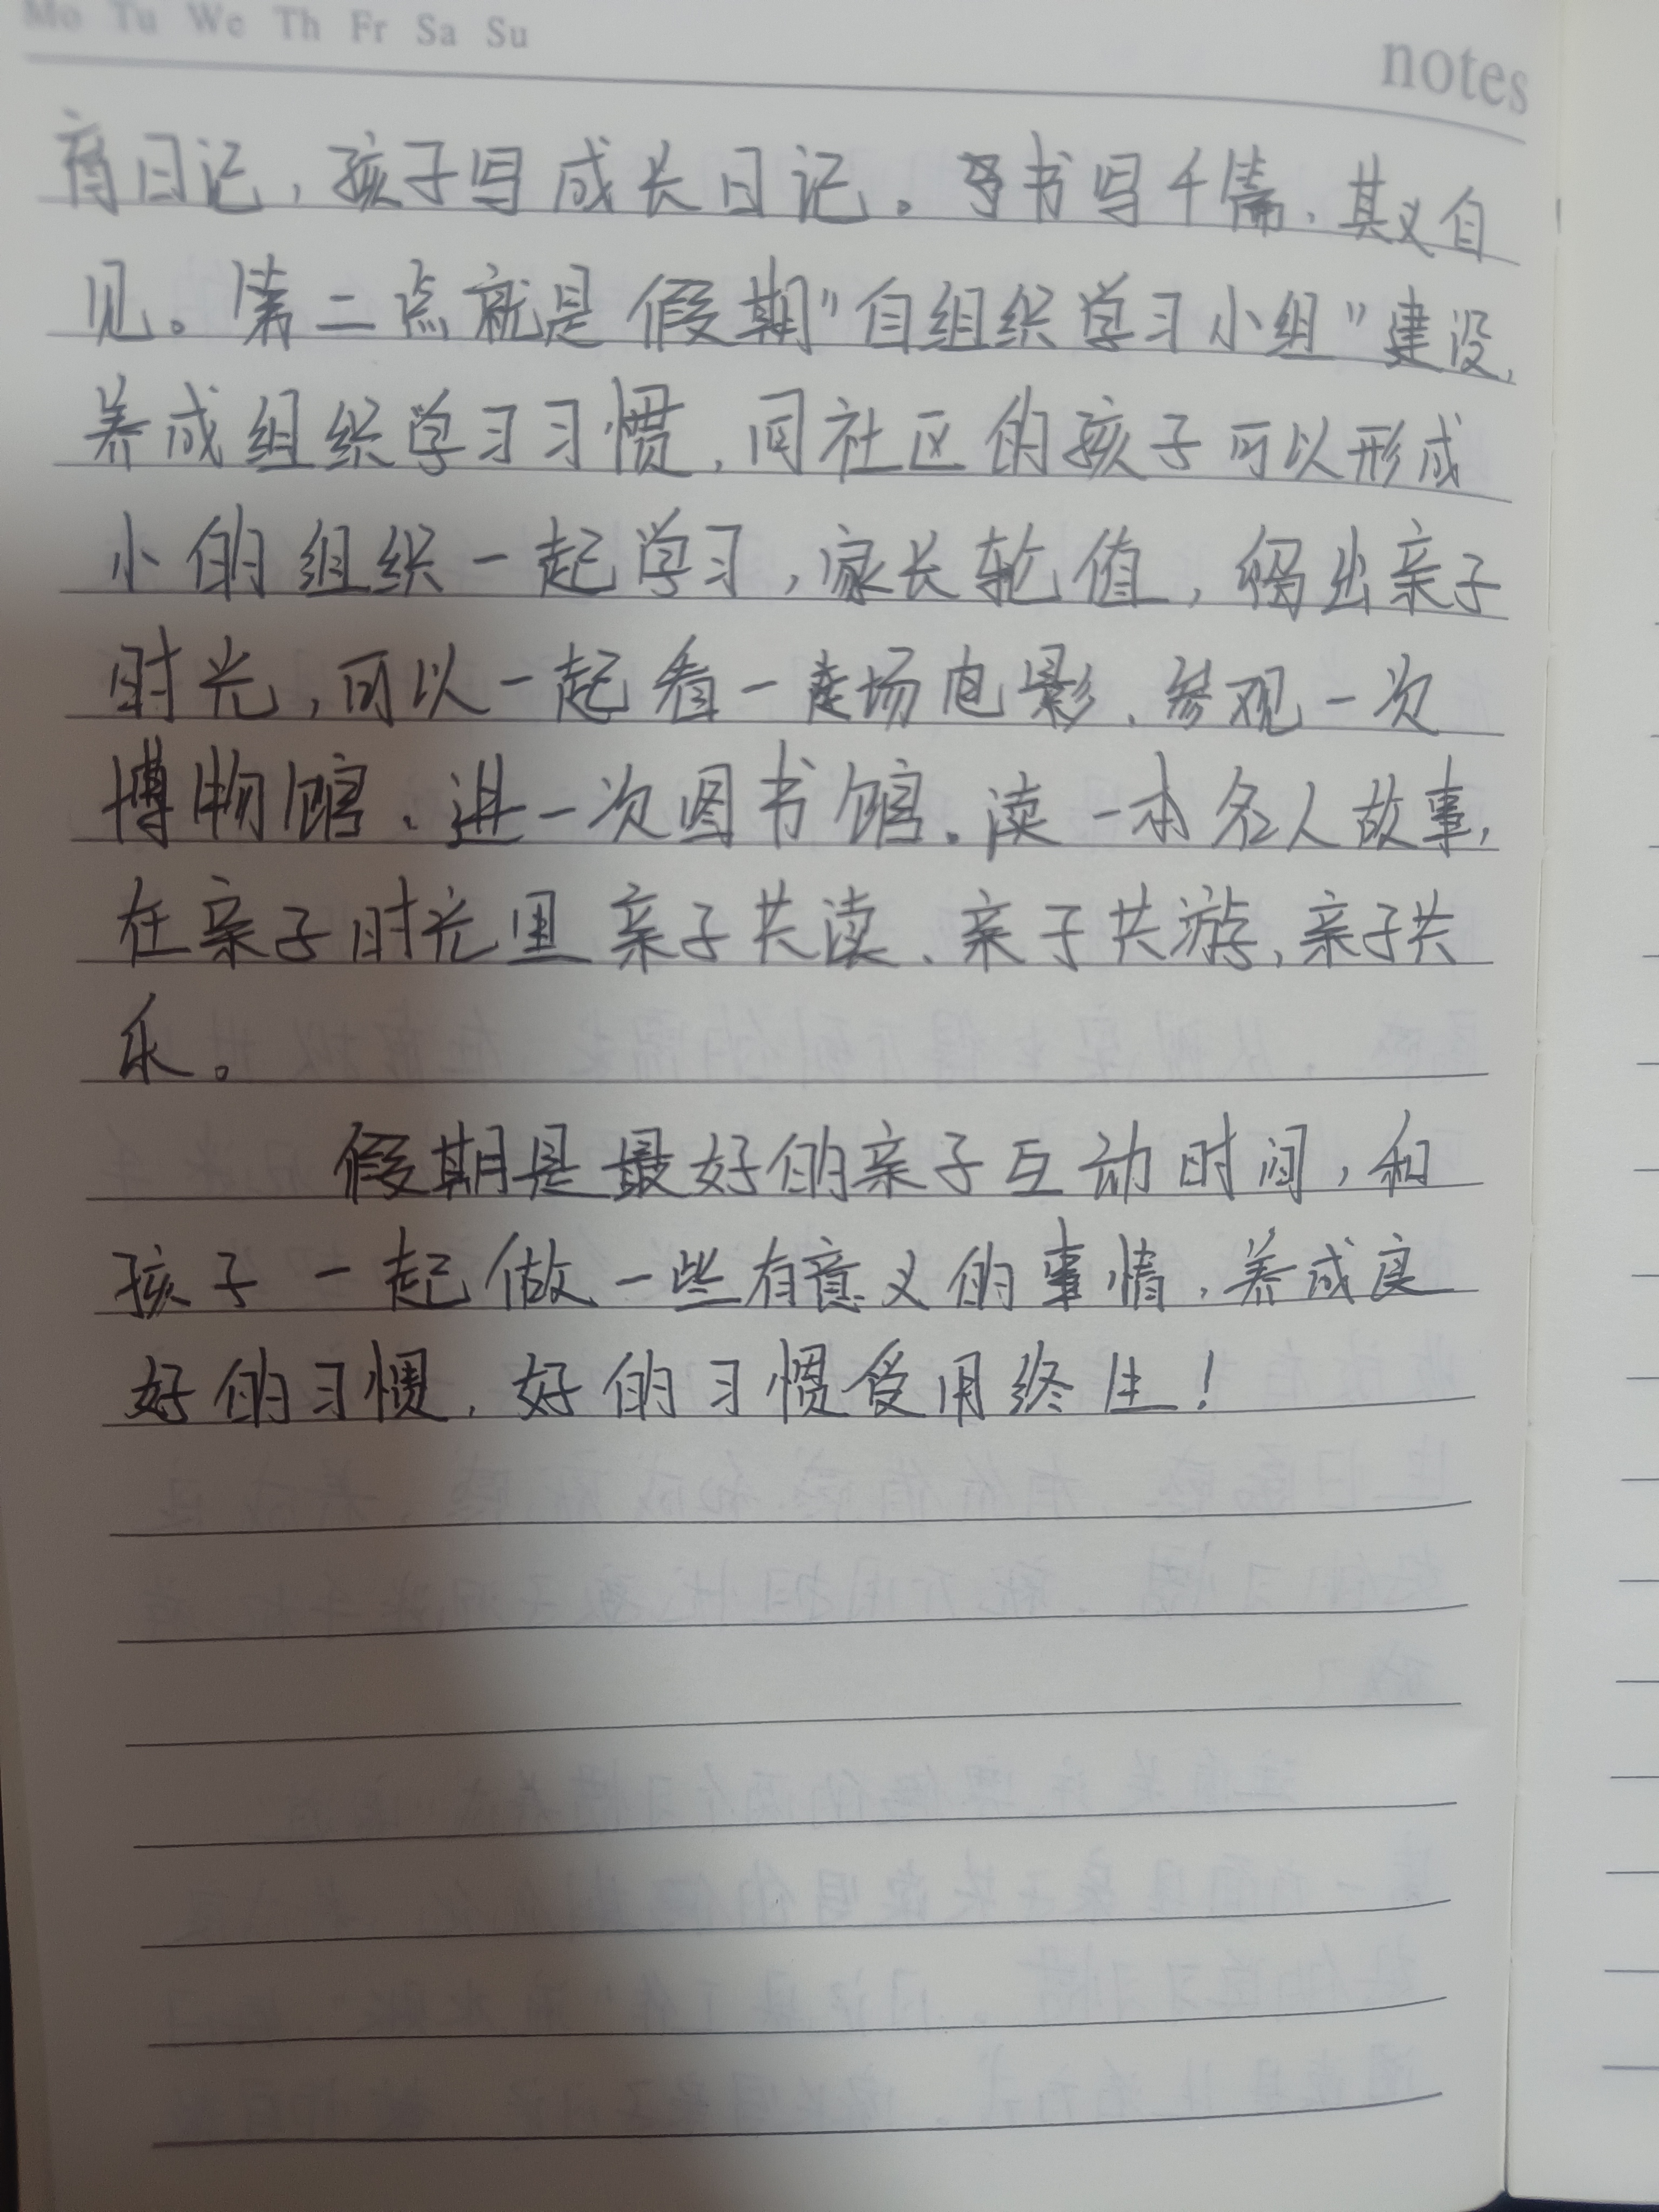 Mo Tu We Th Fr Sa Su
notes
育日记，孩子写成长日记。书写千篇，其义自
见。第二点就是假期“自组织学习小组”建设，
养成组织学习习惯，同社区的孩子可以形成
小的组织一起学习，家长轮值，留出亲子
时光，可以一起看一场电影、参观一次
博物馆、进一次图书馆、读一本名人故事，
在亲子时光里亲子共读、亲子共游，亲子共
乐。
假期是最好的亲子互动时间，和
孩子一起做一些有意义的事情，养成良
好的习惯，好的习惯受用终生！